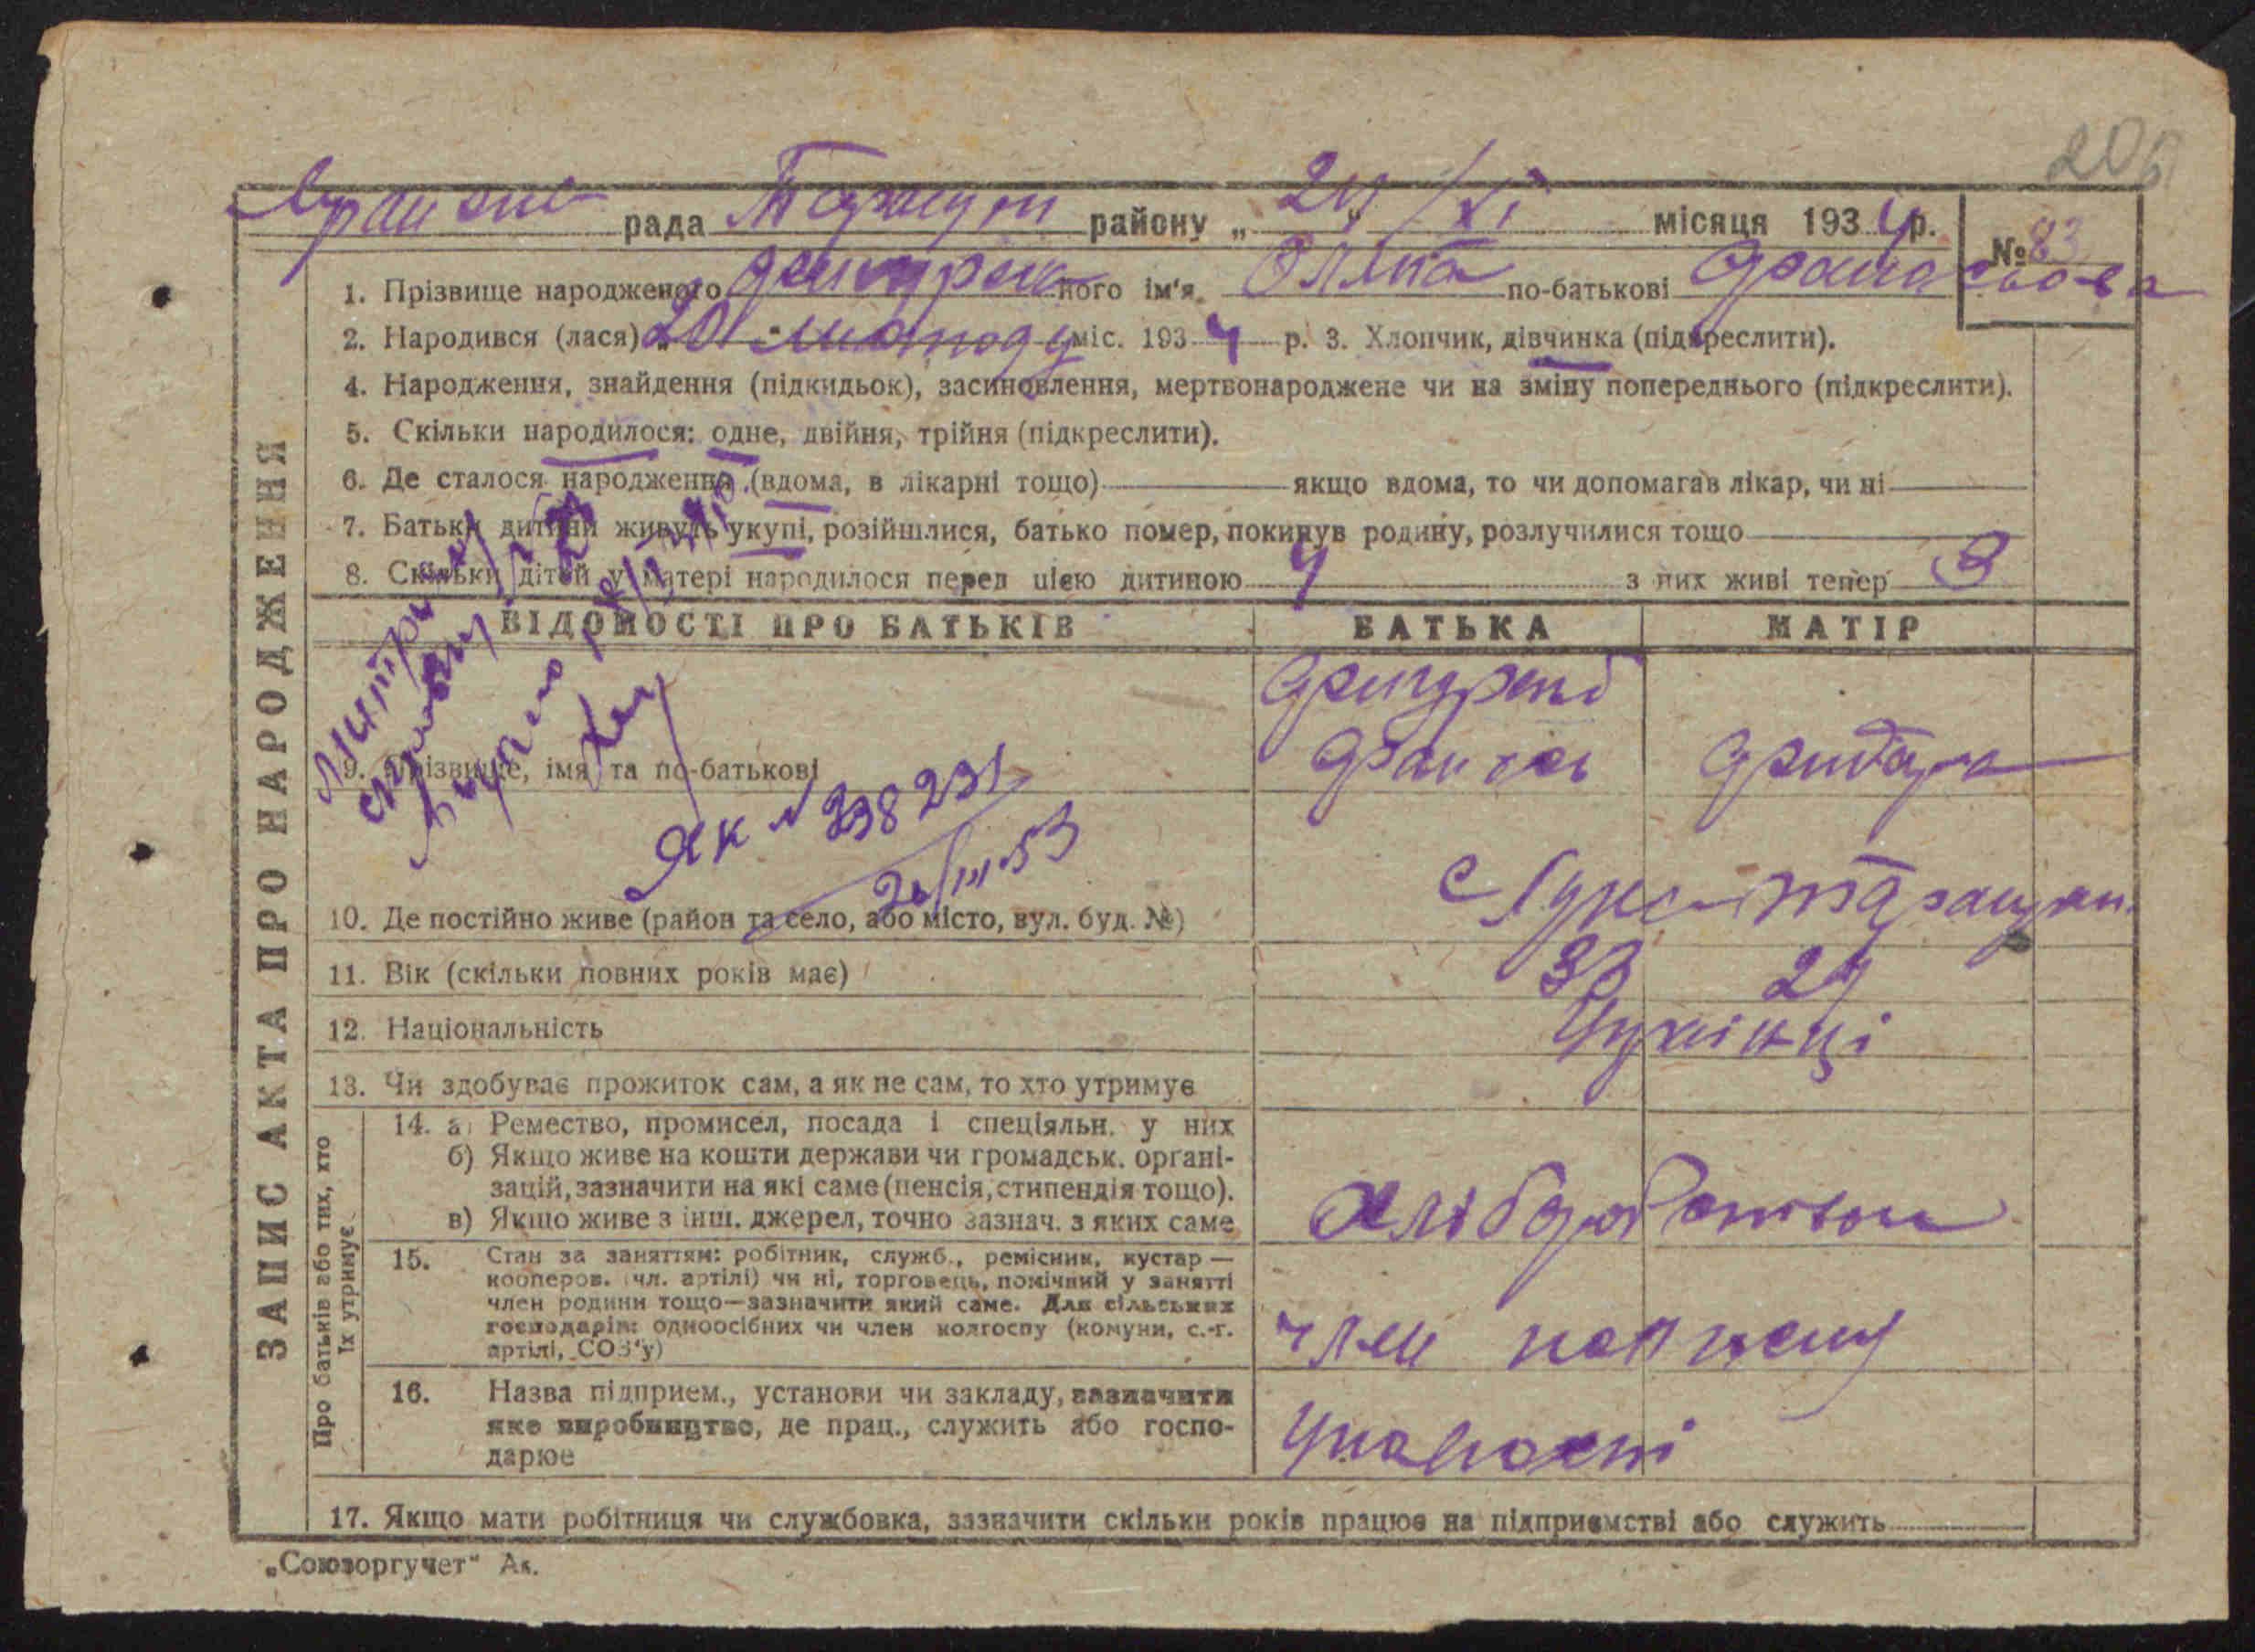 206
рада район у „ 24 / XI місяця 1934 р.
№ 83
1. Прізвище народженого його ім'я Оляна по-батькові
2. Народився (лася) „20 листопаду міс. 1934 р. 3. Хлопчик, дівчинка (підкреслити).
4. Народження, знайдення (підкидьок), засиновлення, мертвонароджене чи на зміну попереднього (підкреслити).
5. Скільки народилося: одне, двійня, трійня (підкреслити).
6. Де сталося народження (вдома, в лікарні тощо) якщо вдома, то чи допомагав лікар, чи ні
7. Батьки дитини живуть укупі, розійшлися, батько помер, покинув родину, розлучилися тощо
8. Скільки дітей у матері народилося перед цією дитиною 4 з них живі тепер 3
ВІДОМОСТІ ПРО БАТЬКІВ БАТЬКА МАТІР
9. Прізвище, імя та по-батькові
ЯК № 398231
26/III.53
10. Де постійно живе (район та село, або місто, вул. буд. №) с
11. Вік (скільки повних років має) 33 29
12. Національність Українці
13. Чи здобуває прожиток сам, а як не сам, то хто утримує
14. а) Ремество, промисел, посада і спеціяльн. у них
б) Якщо живе на кошти держави чи громадськ. органі-
зацій, зазначити на які саме (пенсія, стипендія тощо).
в) Якщо живе з інш. джерел, точно зазнач. з яких саме
хліборобством
15. Стан за заняттям: робітник, служб., ремісник, кустар —
кооперов. (чл. артілі) чи ні, торговець, помічний у занятті
член родини тощо—зазначити який саме. Для сільських
господарів: одноосібних чи член колгоспу (комуни, с.-г.
артілі, СОЗ'у)
член колгоспу
16. Назва підприєм., установи чи закладу, зазначити
яке виробництво, де прац., служить або госпо-
дарює
17. Якщо мати робітниця чи службовка, зазначити скільки років працює на підприємстві або служить
ЗАПИС АКТА ПРО НАРОДЖЕННЯ
Про батьків або тих, хто
їх утримує
„Союзоргучет" Ак.